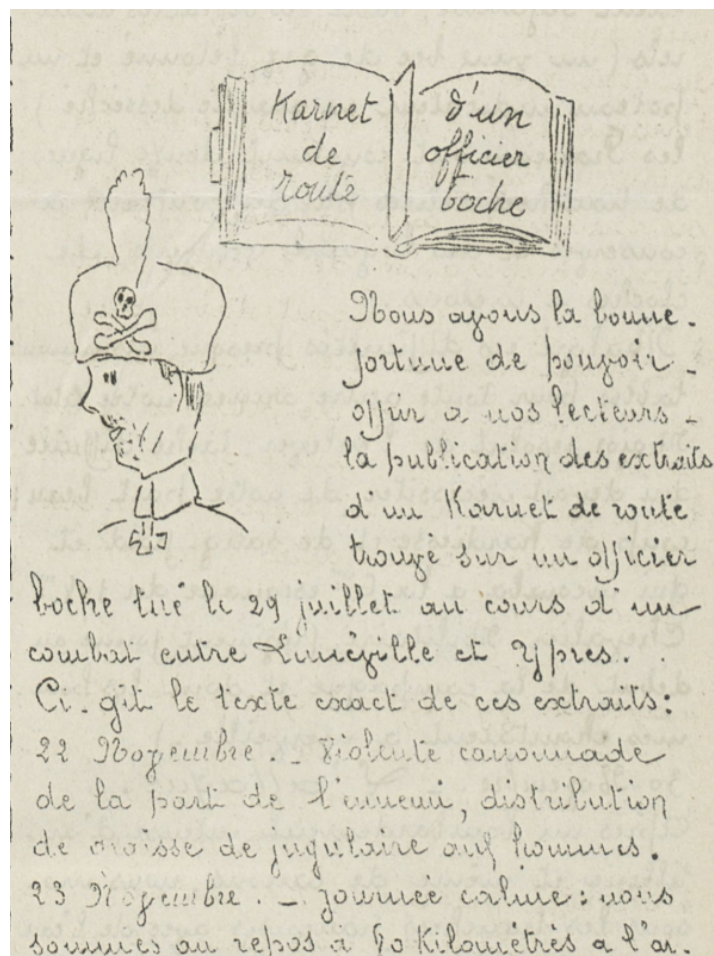 Karnet
de
route
d'un
officier
boche
Nous avons la bonne.
fortune de pouvoir -
offrir a nos lecteurs -
la publication des extraits
d'un Karnet de route
trouvé sur un officier
boche tué le 29 juillet au cours d'un
combat entre Lunéville et Ypres.
Ci-gît le texte exact de ces extraits:
22 Novembre. - Violente canonnade
de la part de l'ennemi, distribution
de graisse de jugulaire aux hommes.
23 Novembre. - journée calme: nous
sommes au repos à 60 Kilomètres a l'ar-